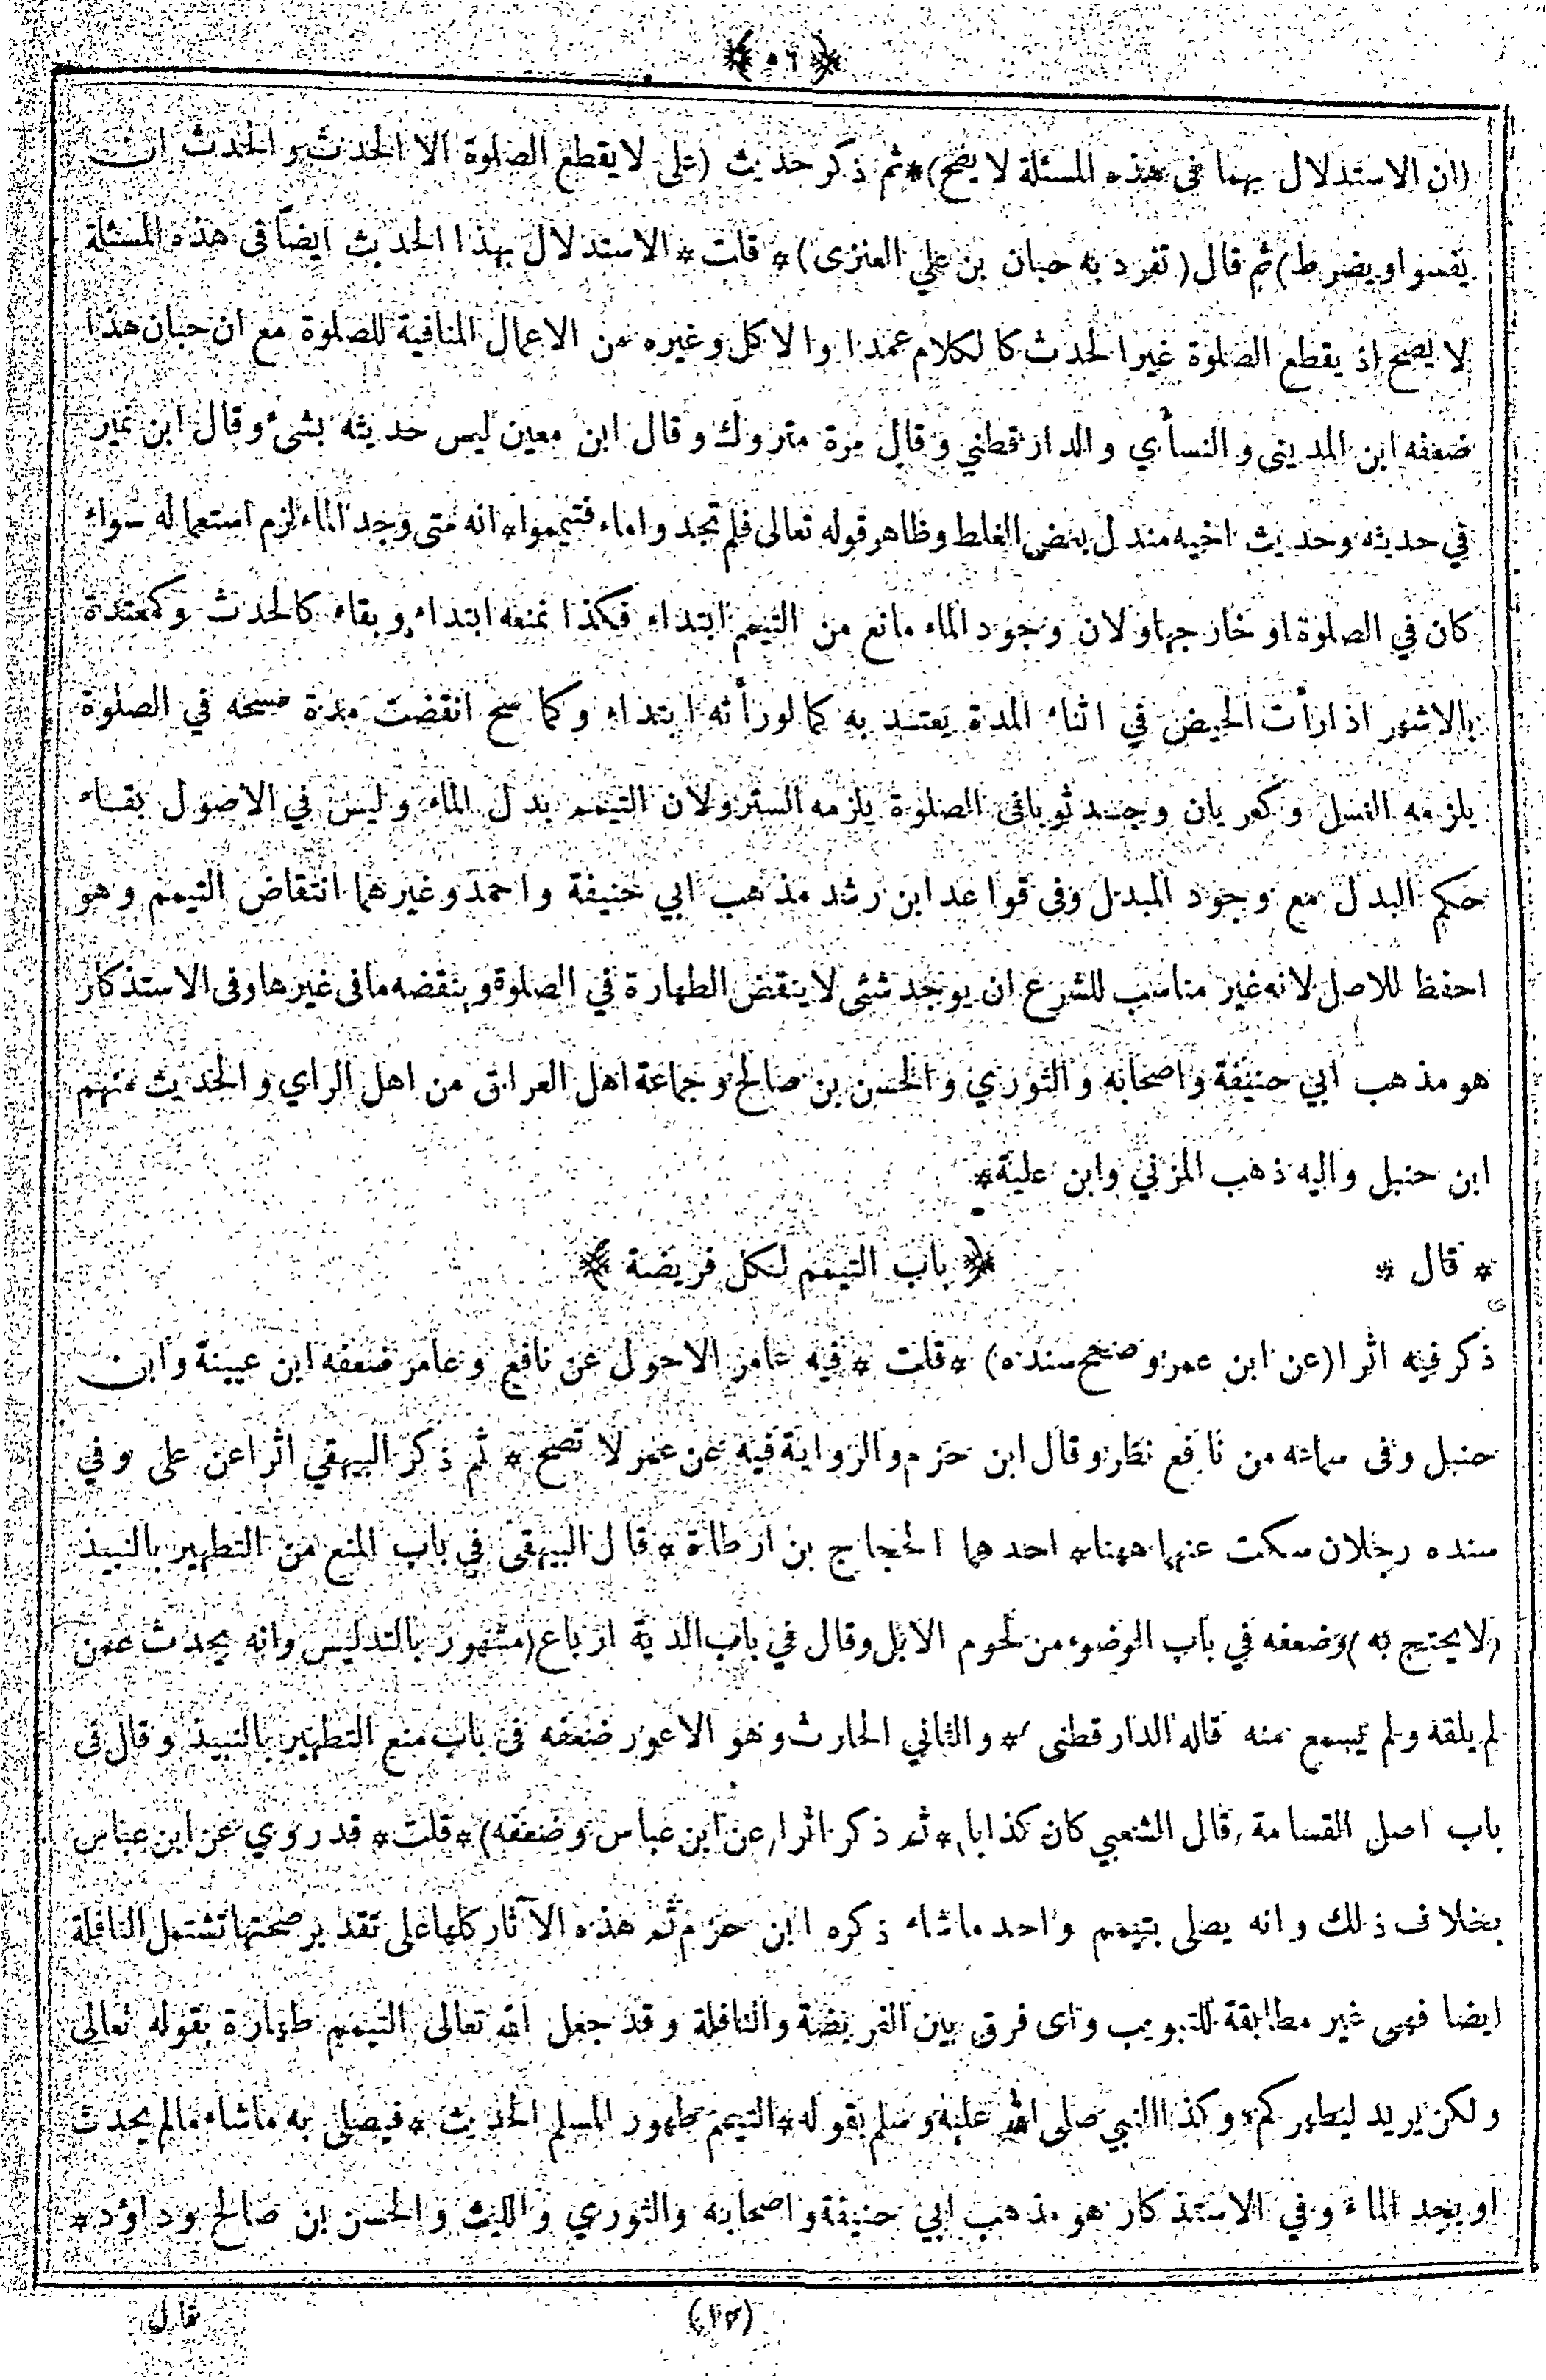 ﴿ ٥٦ ﴾
(ان الاستدلال بهما فى هذه المسئلة لا يصح)* ثم ذكر حديث (على لا يقطع الصلوة الا الحدث والحدث ان
يفسو او يضرط) ثم قال (تفرد به حبان بن علي العنزى)* قلت * الاستدلال بهذا الحديث ايضاً فى هذه المسئلة
لا يصح اذ يقطع الصلوة غير الحدث كالكلام عمدا والاكل وغيره من الاعمال المنافية للصلوة مع ان حبان هذا
ضعفه ابن المدينى والنسأي والدارقطني وقال مرة متروك وقال ابن معين ليس حديثه بشئ وقال ابن نمير
في حديثه وحديث اخيه مندل بعض الغلط وظاهر قوله تعالى فلم تجدوا ماء فتيمموا* انه متى وجد الماء لزم استعماله سواء
كان في الصلوة او خارجها ولان وجود الماء مانع من التيمم ابتداء فكذا نمنعه ابتداء وبقاء كالحدث وكمعتدة
بالاشهر اذا رأت الحيض في اثناء المدة يعتد به كما لو رأته ابتداء وكماسح انقضت مدة مسحه في الصلوة
يلزمه الغسل وكعريان وجد ثوبا فى الصلوة يلزمه الستر ولان التيمم بدل الماء وليس في الاصول بقاء
حكم البدل مع وجود المبدل وفى قواعد ابن رشد مذهب ابي حنيفة واحمد وغيرهما انتقاض التيمم وهو
احفظ للاصل لانه غير مناسب للشرع ان يوجد شئى لا ينقض الطهارة في الصلوة وينقضه ما فى غيرها وفى الاستذكار
هو مذهب ابي حنيفة واصحابه والثوري والحسن بن صالح وجماعة اهل العراق من اهل الراي والحديث منهم
ابن حنبل واليه ذهب المزني وابن علية*
* قال * ﴿ باب التيمم لكل فريضة ﴾
ذكر فيه اثرا (عن ابن عمر وصحح سنده) * قلت * فيه عامر الاحول عن نافع وعامر ضعفه ابن عيينة وابن
حنبل وفى سماعه من نافع نظر وقال ابن حزم والرواية فيه عن عمر لا تصح * ثم ذكر البيهقي اثرا عن على وفي
سنده رجلان سكت عنهما ههنا* احدهما الحجاج بن ارطاة * قال البيهقى في باب المنع من التطهير بالنبيذ
(لا يحتج به) وضعفه في باب الوضوء من لحوم الابل وقال في باب الدية ارباع (مشهور بالتدليس وانه يحدث عمن
لم يلقه ولم يسمع منه قاله الدارقطنى) * والثاني الحارث وهو الاعور ضعفه فى باب منع التطهير بالنبيذ وقال فى
باب اصل القسامة (قال الشعبي كان كذابا) * ثم ذكر اثرا (عن ابن عباس وضعفه) * قلت * قد روي عن ابن عباس
بخلاف ذلك وانه يصلى بتيمم واحد ما شاء ذكره ابن حزم ثم هذه الآثار كلها على تقدير صحتها تشتمل النافلة
ايضا فهى غير مطابقة للتبويب واى فرق بين الفريضة والنافلة وقد جعل الله تعالى التيمم طهارة بقوله تعالى
ولكن يريد ليطهركم* وكذا النبي صلى الله عليه وسلم بقوله * التيمم طهور المسلم الحديث * فيصلى به ما شاء ما لم يحدث
او يجد الماء وفي الاستذكار هو مذهب ابي حنيفة واصحابه والثوري والليث والحسن بن صالح وداؤد*
قال